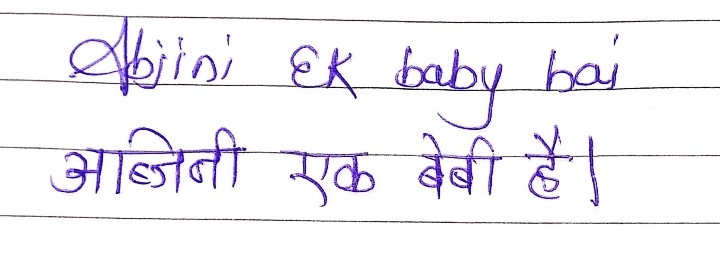 Abjini EK baby hai
आब्जिनी एक बेबी है।